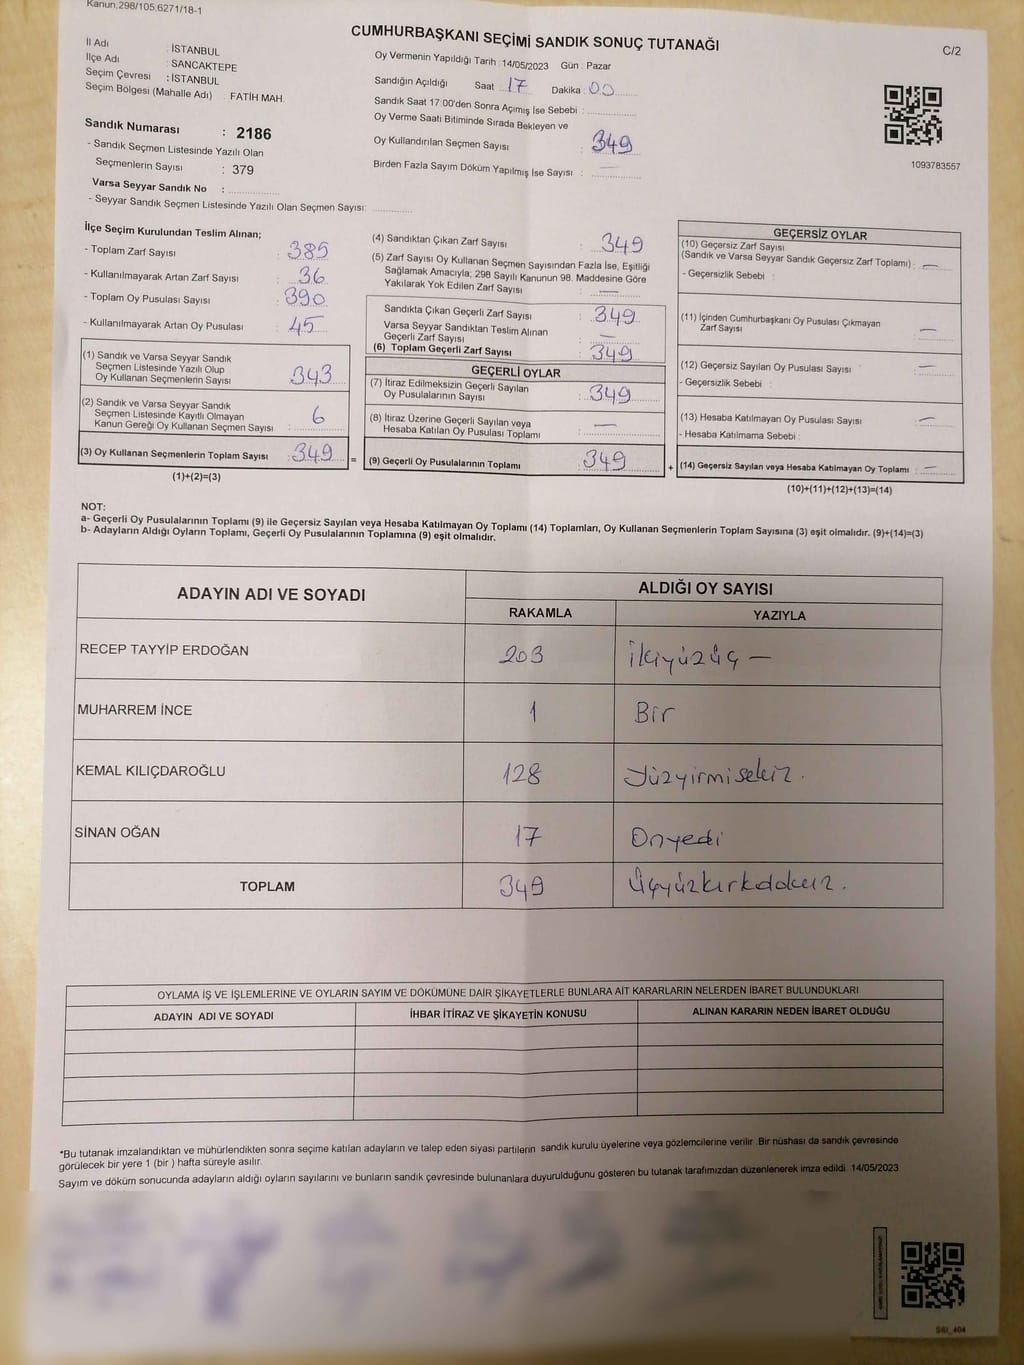 Kanun:298/105.6271/18-1
CUMHURBAŞKANI SEÇİMİ SANDIK SONUÇ TUTANAĞI
C/2
İl Adı : İSTANBUL
İlçe Adı : SANCAKTEPE
Seçim Çevresi : İSTANBUL
Seçim Bölgesi (Mahalle Adı) : FATİH MAH.
Sandık Numarası : 2186
- Sandık Seçmen Listesinde Yazılı Olan
Seçmenlerin Sayısı : 379
Varsa Seyyar Sandık No :
- Seyyar Sandık Seçmen Listesinde Yazılı Olan Seçmen Sayısı:
Oy Vermenin Yapıldığı Tarih : 14/05/2023 Gün : Pazar
Sandığın Açıldığı Saat : 17 Dakika : 00
Sandık Saat 17:00'den Sonra Açımış İse Sebebi :
Oy Verme Saati Bitiminde Sırada Bekleyen ve
Oy Kullandırılan Seçmen Sayısı : 349
Birden Fazla Sayım Döküm Yapılmış İse Sayısı :
1093783557
İlçe Seçim Kurulundan Teslim Alınan;
- Toplam Zarf Sayısı : 385
- Kullanılmayarak Artan Zarf Sayısı : 36
- Toplam Oy Pusulası Sayısı : 390
- Kullanılmayarak Artan Oy Pusulası : 45
(1) Sandık ve Varsa Seyyar Sandık
Seçmen Listesinde Yazılı Olup
Oy Kullanan Seçmenlerin Sayısı : 343
(2) Sandık ve Varsa Seyyar Sandık
Seçmen Listesinde Kayıtlı Olmayan
Kanun Gereği Oy Kullanan Seçmen Sayısı : 6
(3) Oy Kullanan Seçmenlerin Toplam Sayısı : 349 =
(1)+(2)=(3)
(4) Sandıktan Çıkan Zarf Sayısı : 349
(5) Zarf Sayısı Oy Kullanan Seçmen Sayısından Fazla İse, Eşitliği
Sağlamak Amacıyla; 298 Sayılı Kanunun 98. Maddesine Göre
Yakılarak Yok Edilen Zarf Sayısı : —
Sandıkta Çıkan Geçerli Zarf Sayısı : 349
Varsa Seyyar Sandıktan Teslim Alınan
Geçerli Zarf Sayısı : —
(6) Toplam Geçerli Zarf Sayısı : 349
GEÇERLİ OYLAR
(7) İtiraz Edilmeksizin Geçerli Sayılan
Oy Pusulalarının Sayısı : 349
(8) İtiraz Üzerine Geçerli Sayılan veya
Hesaba Katılan Oy Pusulası Toplamı : —
(9) Geçerli Oy Pusulalarının Toplamı : 349 +
GEÇERSİZ OYLAR
(10) Geçersiz Zarf Sayısı
(Sandık ve Varsa Seyyar Sandık Geçersiz Zarf Toplamı) : —
- Geçersizlik Sebebi :
(11) İçinden Cumhurbaşkanı Oy Pusulası Çıkmayan
Zarf Sayısı : —
(12) Geçersiz Sayılan Oy Pusulası Sayısı : —
- Geçersizlik Sebebi :
(13) Hesaba Katılmayan Oy Pusulası Sayısı : —
- Hesaba Katılmama Sebebi :
(14) Geçersiz Sayılan veya Hesaba Katılmayan Oy Toplamı : —
(10)+(11)+(12)+(13)=(14)
NOT:
a- Geçerli Oy Pusulalarının Toplamı (9) ile Geçersiz Sayılan veya Hesaba Katılmayan Oy Toplamı (14) Toplamları, Oy Kullanan Seçmenlerin Toplam Sayısına (3) eşit olmalıdır. (9)+(14)=(3)
b- Adayların Aldığı Oyların Toplamı, Geçerli Oy Pusulalarının Toplamına (9) eşit olmalıdır.
ADAYIN ADI VE SOYADI ALDIĞI OY SAYISI
RAKAMLA YAZIYLA
RECEP TAYYİP ERDOĞAN 203 İkiyüzüç —
MUHARREM İNCE 1 Bir
KEMAL KILIÇDAROĞLU 128 Yüzyirmisekiz.
SİNAN OĞAN 17 Onyedi
TOPLAM 349 Üçyüzkırkdokuz.
OYLAMA İŞ VE İŞLEMLERİNE VE OYLARIN SAYIM VE DÖKÜMÜNE DAİR ŞİKAYETLERLE BUNLARA AİT KARARLARIN NELERDEN İBARET BULUNDUKLARI
ADAYIN ADI VE SOYADI İHBAR İTİRAZ VE ŞİKAYETİN KONUSU ALINAN KARARIN NEDEN İBARET OLDUĞU
*Bu tutanak imzalandıktan ve mühürlendikten sonra seçime katılan adayların ve talep eden siyasi partilerin sandık kurulu üyelerine veya gözlemcilerine verilir. Bir nüshası da sandık çevresinde
görülecek bir yere 1 (bir ) hafta süreyle asılır.
Sayım ve döküm sonucunda adayların aldığı oyların sayılarını ve bunların sandık çevresinde bulunanlara duyurulduğunu gösteren bu tutanak tarafımızdan düzenlenerek imza edildi. 14/05/2023